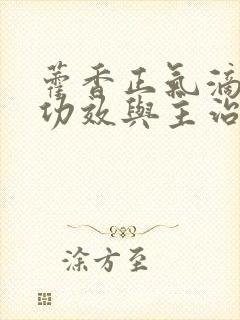 藿香正氣滴
功效與主治
涂方至